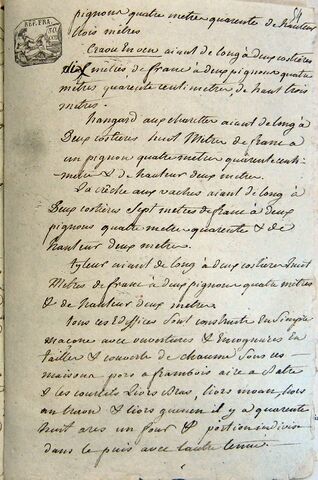 REP. FRA.
pignons quatre metres quarente de hauteur
trois métres
Craou En ven aiant de long à deux costieres
dix métres de france à deux pignons quatre
métres quarente centi-metres de haut trois
metres.
hangard aux charettes aiant de long à
Deux costieres huit Métre de france a
un pignon quatre metre quarente centi-
metre & de hauteur deux metre.
La crèche aux vaches aiant de long à
Deux costieres Sept metres de france à deux
pignons quatre metre quarente & de
hauteur deux metre.
tyleur aiant de long à deux costieres huit
Metres de france à deux pignons quatre métres
& de hauteur deux métre.
tous les Edffices Sont construits En Simple
macone avec ouvertures & Encognures En
tailler & couverts de chaume Sous ces
maisons pors a frambois aire a Batre
& les courtils Liors bras, liors moan, liors
an truon & liors quenen il y a quarente
huit ares un four & portion indivise
dans le puis avec l'autre tenüe.